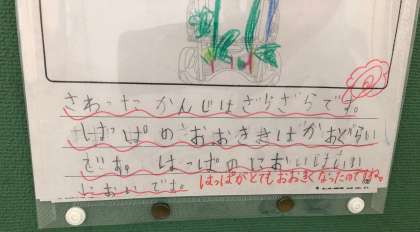 さわった かんじは ざらざらです。
はっぱの おおききは かおぐらい
です。 はっぱの においは いい
におい です。
はっぱがとてもおおきくなったのですね。